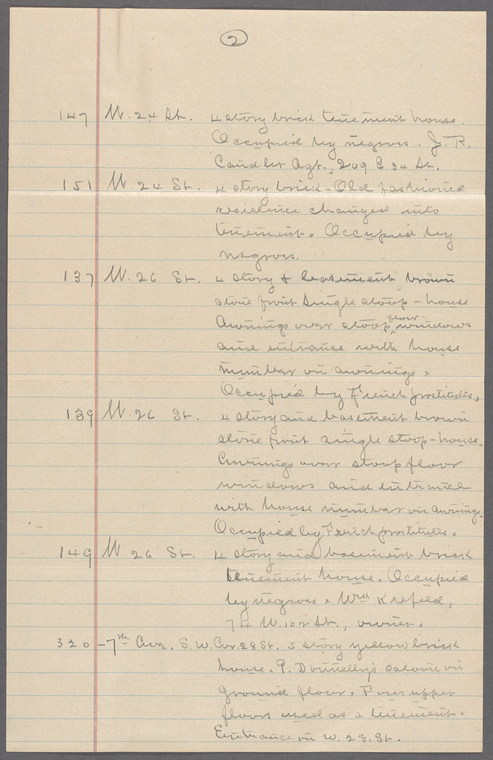 2
147 W. 24 St. 4 story brick tenement house.
Occupied by negroes. J. R.
Candler Agt., 209 E 34 St.
151 W 24 St. 4 story brick - Old fashioned
residence changed into
tenement. Occupied by
negroes.
137 W. 26 St. 4 story & basement, brown
stone front single stoop - house
Awnings over stoop floor windows
and entrance with house
number on awnings.
Occupied by French prostitutes.
139 W. 26 St. 4 story and basement brown
stone front single stoop - house.
Awnings over stoop floor
windows and entrance
with house number on awnings.
Occupied by French prostitutes.
149 W 26 St. 4 story and basement brick
tenement house. Occupied
by negroes. Wm Krefeld,
74 W. 102 St., owner.
320 - 7th Ave. S. W. Cor. 28 St. 5 story yellow brick
house. P. Donnelly's saloon on
ground floor. Four upper
floors used as a tenement.
Entrance on W. 28. St.